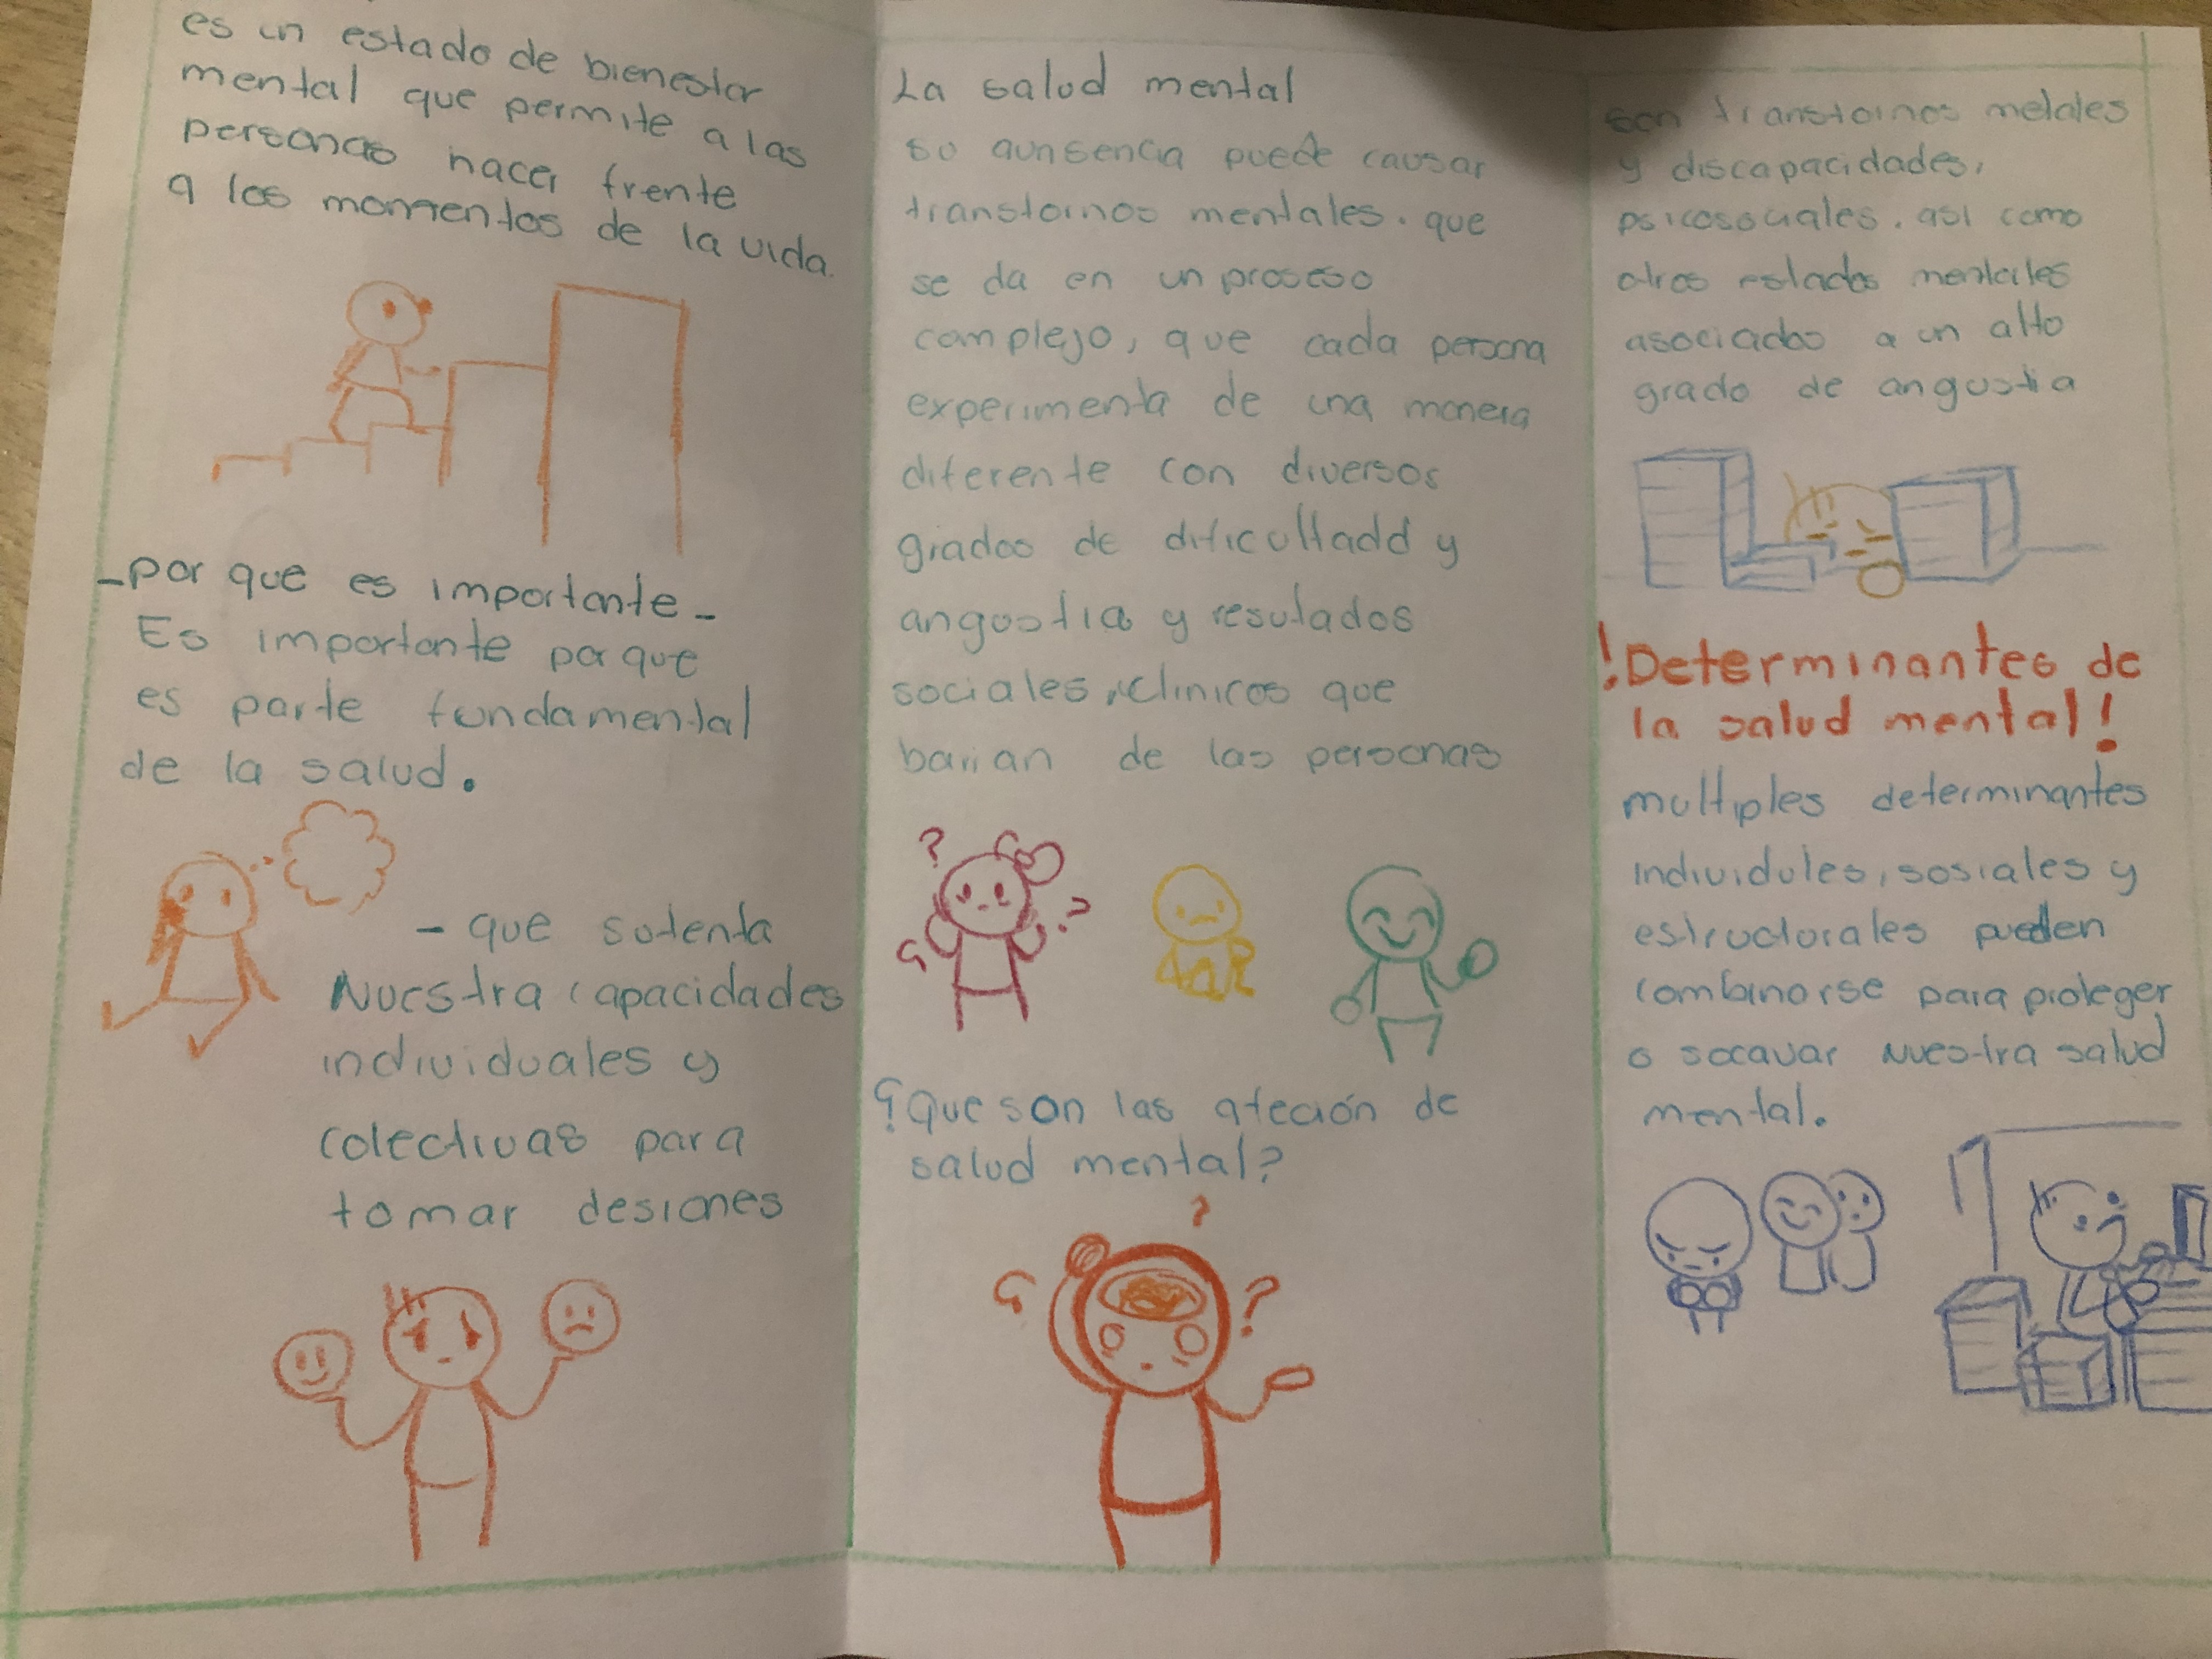 es un estado de bienestar
mental que permite a las
personas hacer frente
a los momentos de la vida.
- por que es importante -
Es importante porque
es parte fundamental
de la salud.
- que sutenta
Nuestra capacidades
individuales y
colectivas para
tomar desiones
La salud mental
su aunsencia puede causar
transtornos mentales. que
se da en un proseso
complejo, que cada persona
experimenta de una manera
diferente con diversos
grados de dificultadd y
angustia y resutados
sociales, clinicos que
barian de las persocnas
? ? ?
¿Que son las afeción de
salud mental?
? ? ?
son transtornos metales
y discapacidades,
psicosociales. asi como
otros estados mentales
asociados a un alto
grado de angustia
!Determinantes de
la salud mental!
multiples determinantes
individules, sosiales y
estructurales pueden
combinarse para proteger
o socavar Nuestra salud
mental.